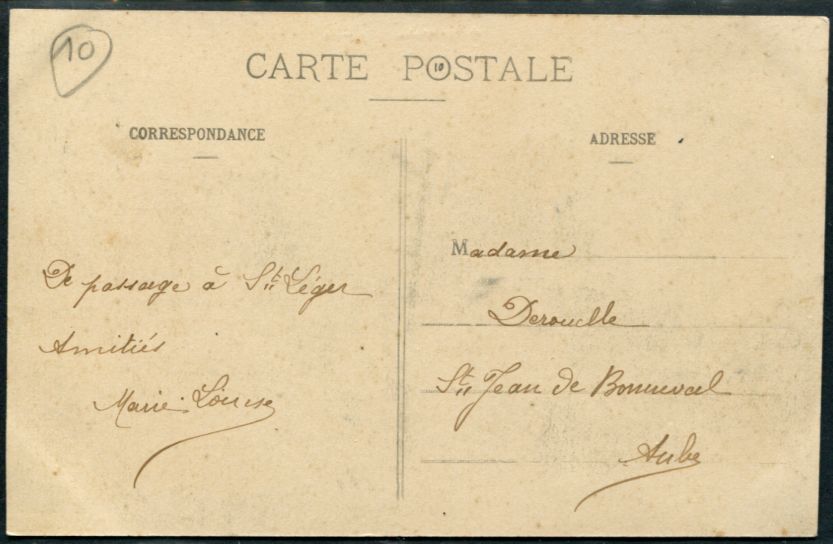 10
CARTE POSTALE
10
CORRESPONDANCE
ADRESSE
De passage à St Léger
Amitiés
Marie Louise
Madame
Derouelle
St Jean de Bonneval
Aube